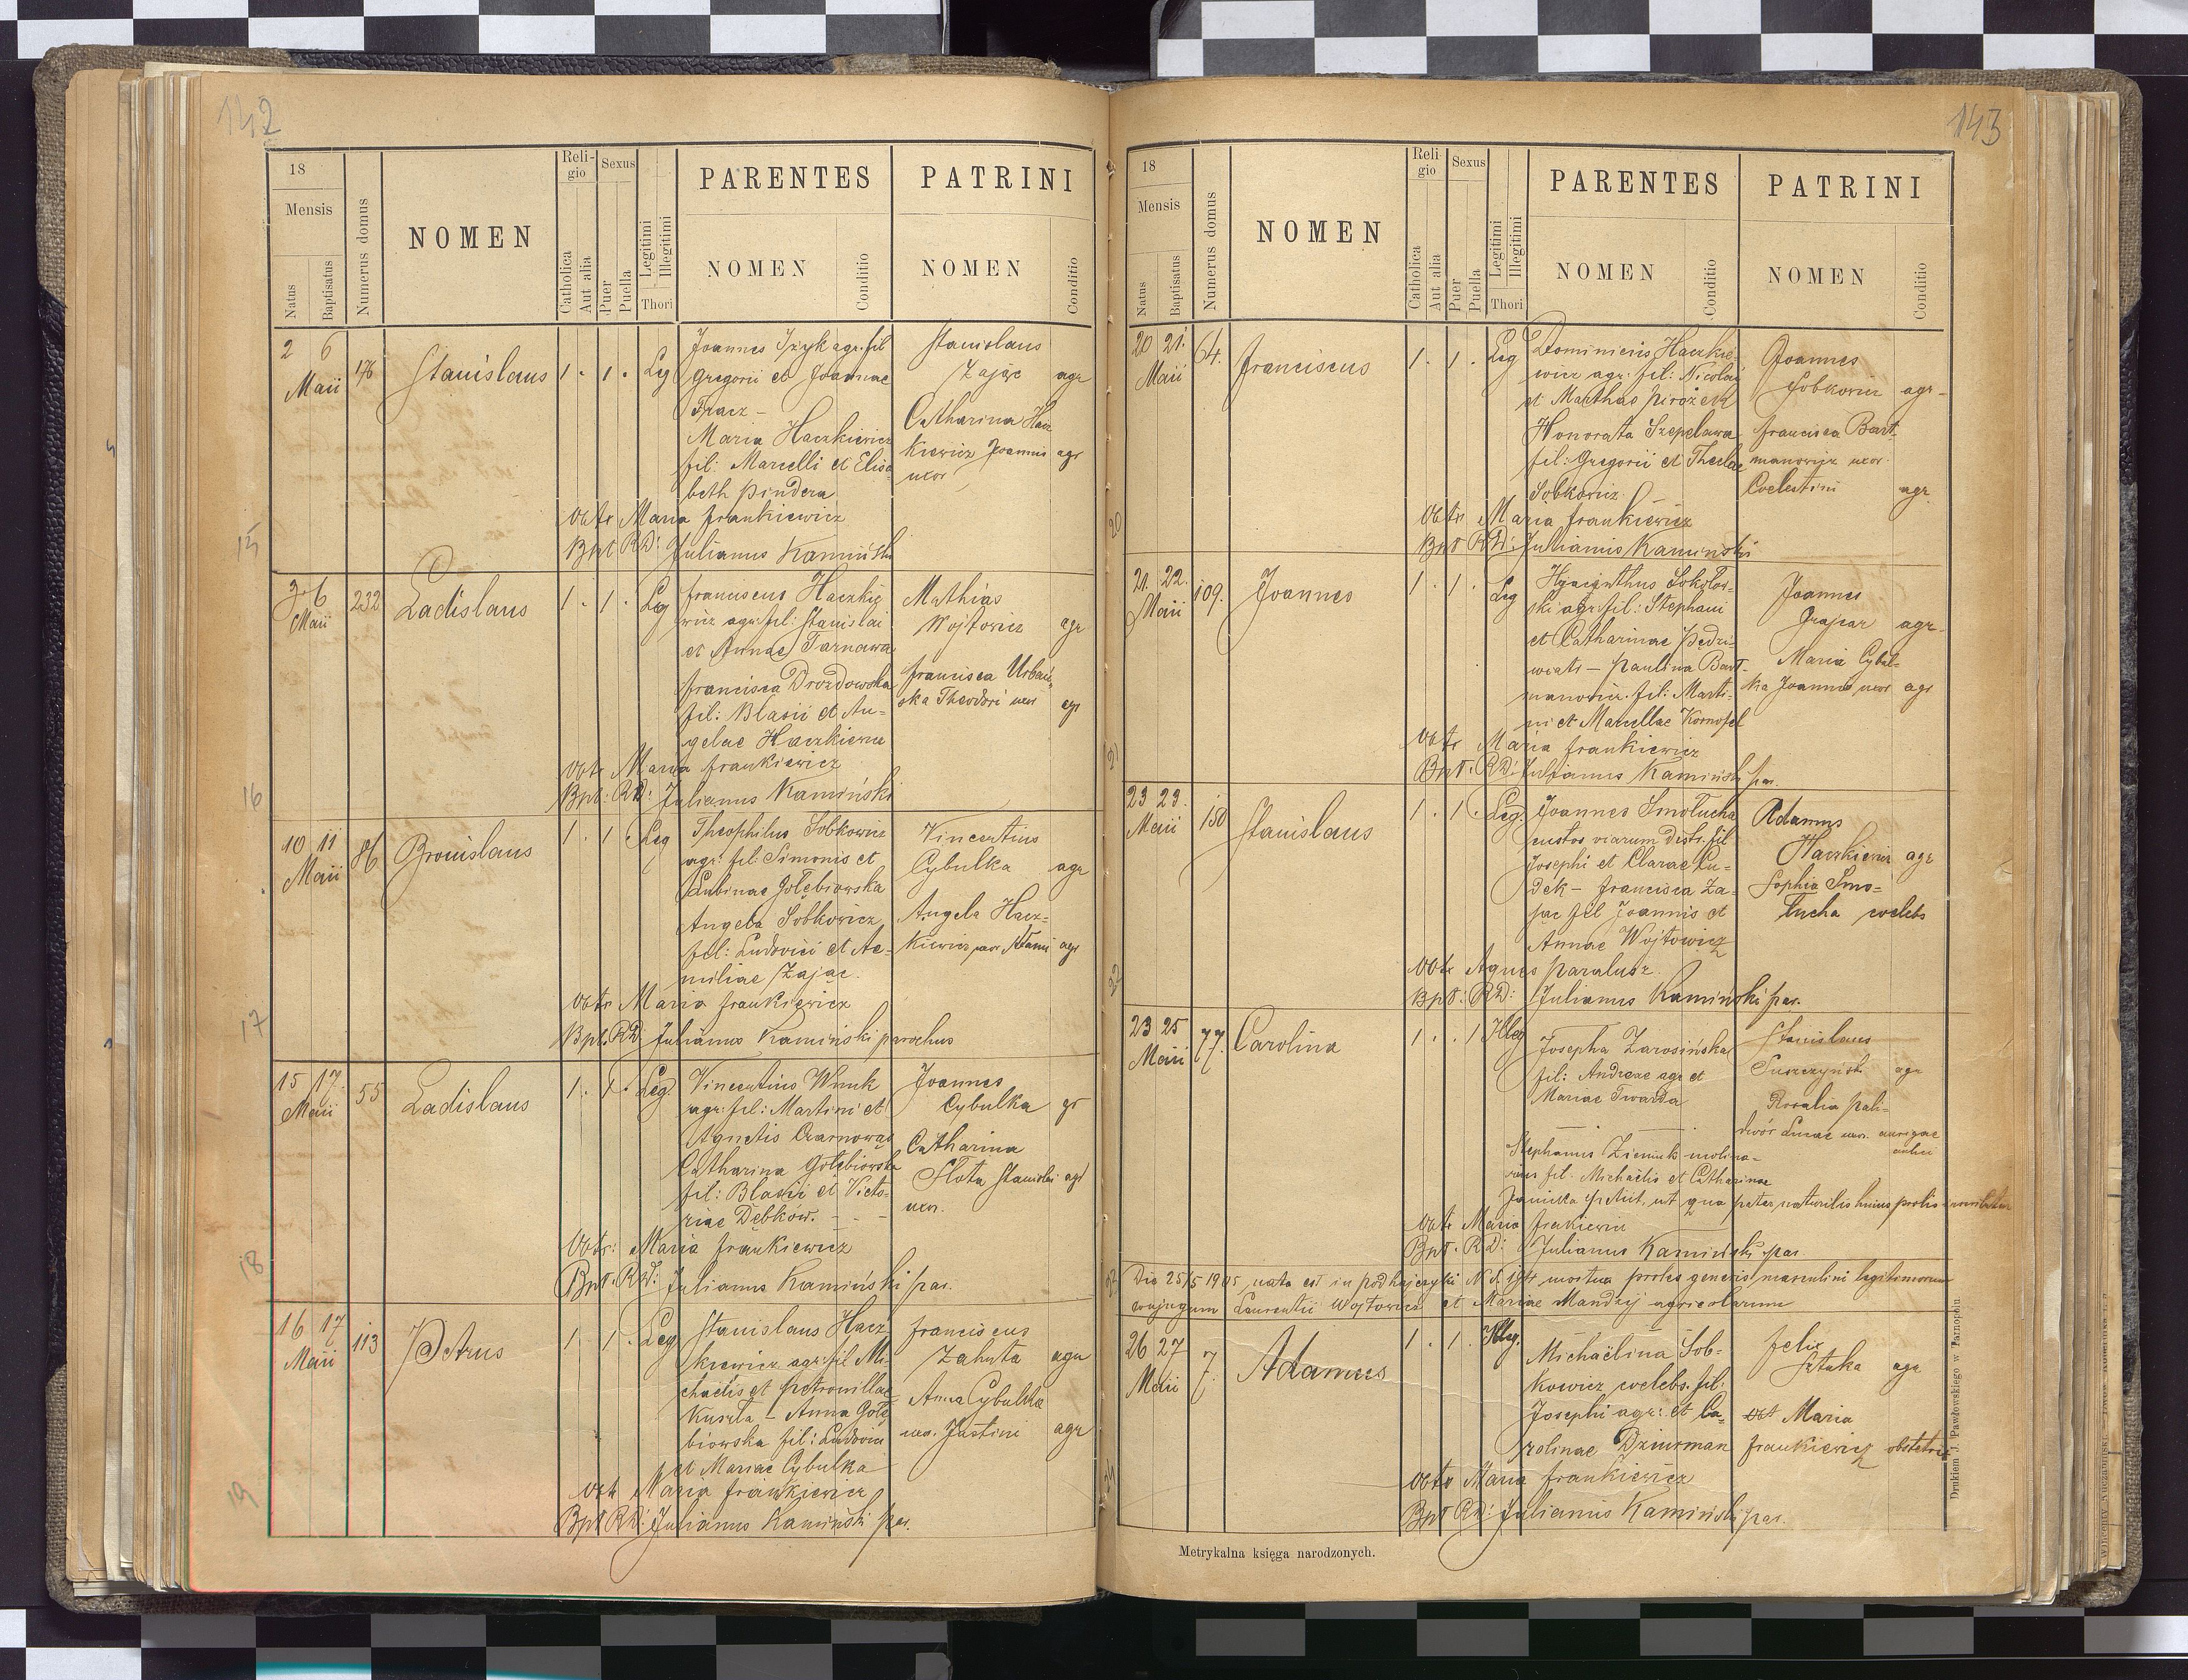 142
18
Mensis
Natus
Baptisatus
Numerus domus
NOMEN
Reli-
gio
Catholica
Aut alia
Sexus
Puer
Puella
Legitimi
Illegitimi
Thori
PARENTES
NOMEN
Conditio
PATRINI
NOMEN
Conditio
2 6
Maii
176
Stanislaus
1 . 1 . Leg
Joannes Izyk agr. fil
Gregorii et Joannae
Tracz -
Maria Haczkiewicz
fil: Marcelli et Elisa
beth Pindera
Stanislaus
Zając agr
Catharina Hacz
kiewicz Joannis agr
uxor
Obstr Maria Frankiewicz
Bpt RD: Julianus Kamiński
15
3 6
Maii
232
Ladislaus
1 . 1 . Leg
Franciscus Haczkie
wicz agr. fil: Stanislai
et Annae Tarnawa
Francisca Drozdowska
fil: Blasii et An-
gelae Haczkiewicz
Mathias
Wojtowicz agr
Francisca Urbań
ska Theodori uxor agr
Obstr Maria Frankiewicz
Bpt: RD: Julianus Kamiński
16
10 11
Maii
86
Bronislaus
1 . 1 . Leg
Theophilus Sobkowicz
agr: fil: Simonis et
Golębiowska
Angela Sobkowicz
fil: Ludovici et Ae-
miliae Zając.
Vincentius
Cybulka agr
Angela Hacz-
kiewicz uxor Adami agr
Obstr Maria Frankiewicz
Bpt. RD Julianus Kamiński parochus
17
15 17.
Maii
55
Ladislaus
1 . 1 . Leg.
Vincentius Wnuk
agr: fil: Martini et
Agnetis
Catharina Gołebiowska
fil: Blasii et Victo-
riae Dębków. - - -
Joannes
Cybulka gr
Catharina
Flota Stanislai agr
uxor.
Obstr: Maria Frankiewicz
Bpt. RD: Julianus Kamiński par.
18
16 17
Maii
113
Petrus
1 . 1 . Leg
Stanislaus Hacz
kiewicz agr: fil Mi-
chaëlis et Petronillae
Kuszta - Anna Gołę
biowska fil: Ludovici
et Mariae Cybulka
Franciscus
Zahuta agr
Anna Cybulka
uxor. Justini agr
Obst Maria Frankiewicz
Bpt RD: Julianus Kamiński par.
19
143
18
Mensis
Natus
Baptisatus
Numerus domus
NOMEN
Reli-
gio
Catholica
Aut alia
Sexus
Puer
Puella
Legitimi
Illegitimi
Thori
PARENTES
NOMEN
Conditio
PATRINI
NOMEN
Conditio
20 21.
Maii
64.
Franciscus
1 . 1 . Leg
Dominicus Haczkie-
wicz agr. fil: Nicolai
et Marthae Pirożek
Honorata Szepelawa
fil: Gregorii et Theclae
Sobkowicz
Joannes
Sobkowicz agr-
Francisca Bart-
manowicz uxor.
Coelestini agr.
Obstr Maria Frankiewicz
Bpt RD: Julianus Kamiński
20
21. 22.
Maii
109.
Joannes
1 . 1 . Leg
Hyacinthus Sokołow-
ski agr: fil: Stephani
et Catharinae Pędzi-
wiatr - Paulina Bart-
manowicz. fil: Marti-
ni et Marcellae Kornafel
Joannes
Grajcar agr-
Maria Cybul-
ka Joannis uxor agr
Obstr Maria Frankiewicz
Bpt. RD: Julianus Kamiński par.
21
23 23.
Maii
150
Stanislaus
1 . 1 . Leg.
Joannes Smołucha
custos viarum distr. fil
Josephi et Clarae Du-
dek - Francisca Za-
jąc fil Joannis et
Annae Wojtowicz
Adamus
Haczkiewicz agr
Sophia Smo-
łucha coelebs
Obstr Agnes Paralusz
Bpt: RD: Julianus Kamiński par.
22
23 25
Maii
77.
Carolina
1 . . 1 Illeg
Josepha Zarosińska
fil: Andreae agr et
Mariae Twarda
Stanislaus
Suszczyński agr
Rosalia Pali-
dwór Lucae uxor. aurigae
aulici
Stephanus Zieniuk molina-
rius fil. Michaëlis et Catharinae
Janicka petiit, ut qua pater naturalis huius prolis inscribatur
Obstr Maria Frakiewicz
Bpt. RD: Julianus Kamiński par.
23
Die 25/5 1905 nata est in Podhajczyki N d. 194 mortua proles generis masculini legitimorum
conjugum Laurentii Wojtowicz et Mariae Mandzij agricolarum
26 27
Maii
7.
Adamus
1 . 1 . Illeg.
Michaëlina Sob-
kowicz coelebs. fil.
Josephi agr: et Ca-
rolinae Dziurman
Felix
Sztuka agr
Maria
Frankiewicz obstetrix
Obstr Maria Frankiewicz
Bpt RD: Julianus Kamiński par.
24
Metrykalna księga narodzonych.
Drukiem J. Pawłowskiego w Tarnopolu.